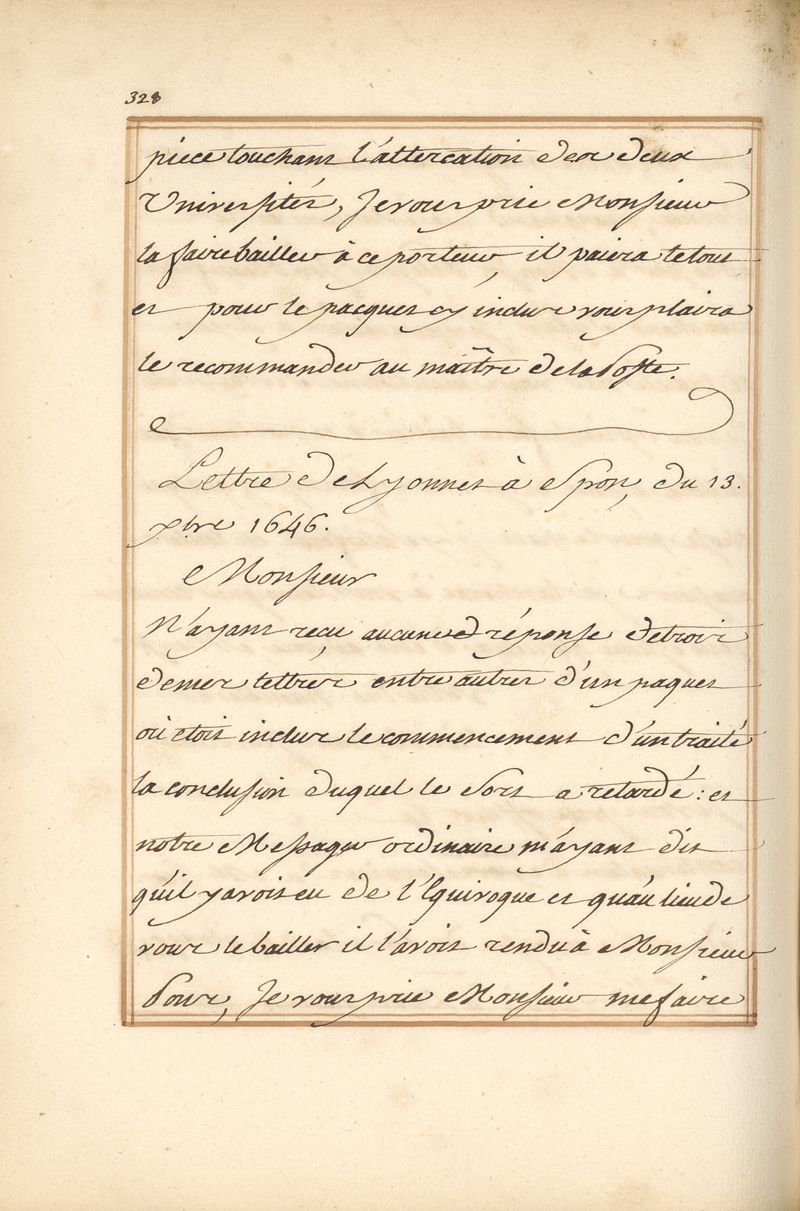 328
piece touchant l'altercation des deux
Universités, Je vous prie Monsieur
la faire bailler à ce porteur, il paiera le tout
et pour le pacquet cy inclus vous plaira
le recommander au maître de la Poste.
Lettre de Lyonnet à Spon, du 13.
xbre 1646.
Monsieur
N'ayant reçu aucune réponse de trois
de mes lettres, entre autres d'un paquet
où etoit inclus le commencement d'un traité
la conclusion duquel le Sort a retardé: et
notre Messager ordinaire m'ayant dit
qu'il y avoit eu de l'Equivoque et qu'au lieu de
vous le bailler il l'avoit rendu à Monsieur
Pour, Je vous prie Monsieur me faire